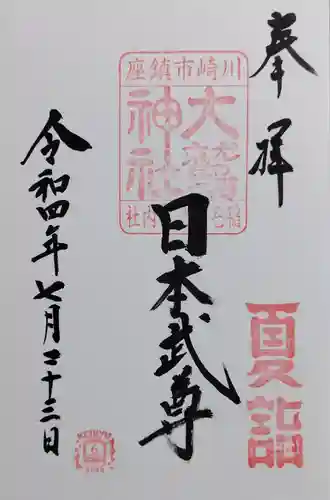 奉拝
川崎市鎮座
大鷲神社
社内
日本武尊
夏詣
令和四年七月二十三日